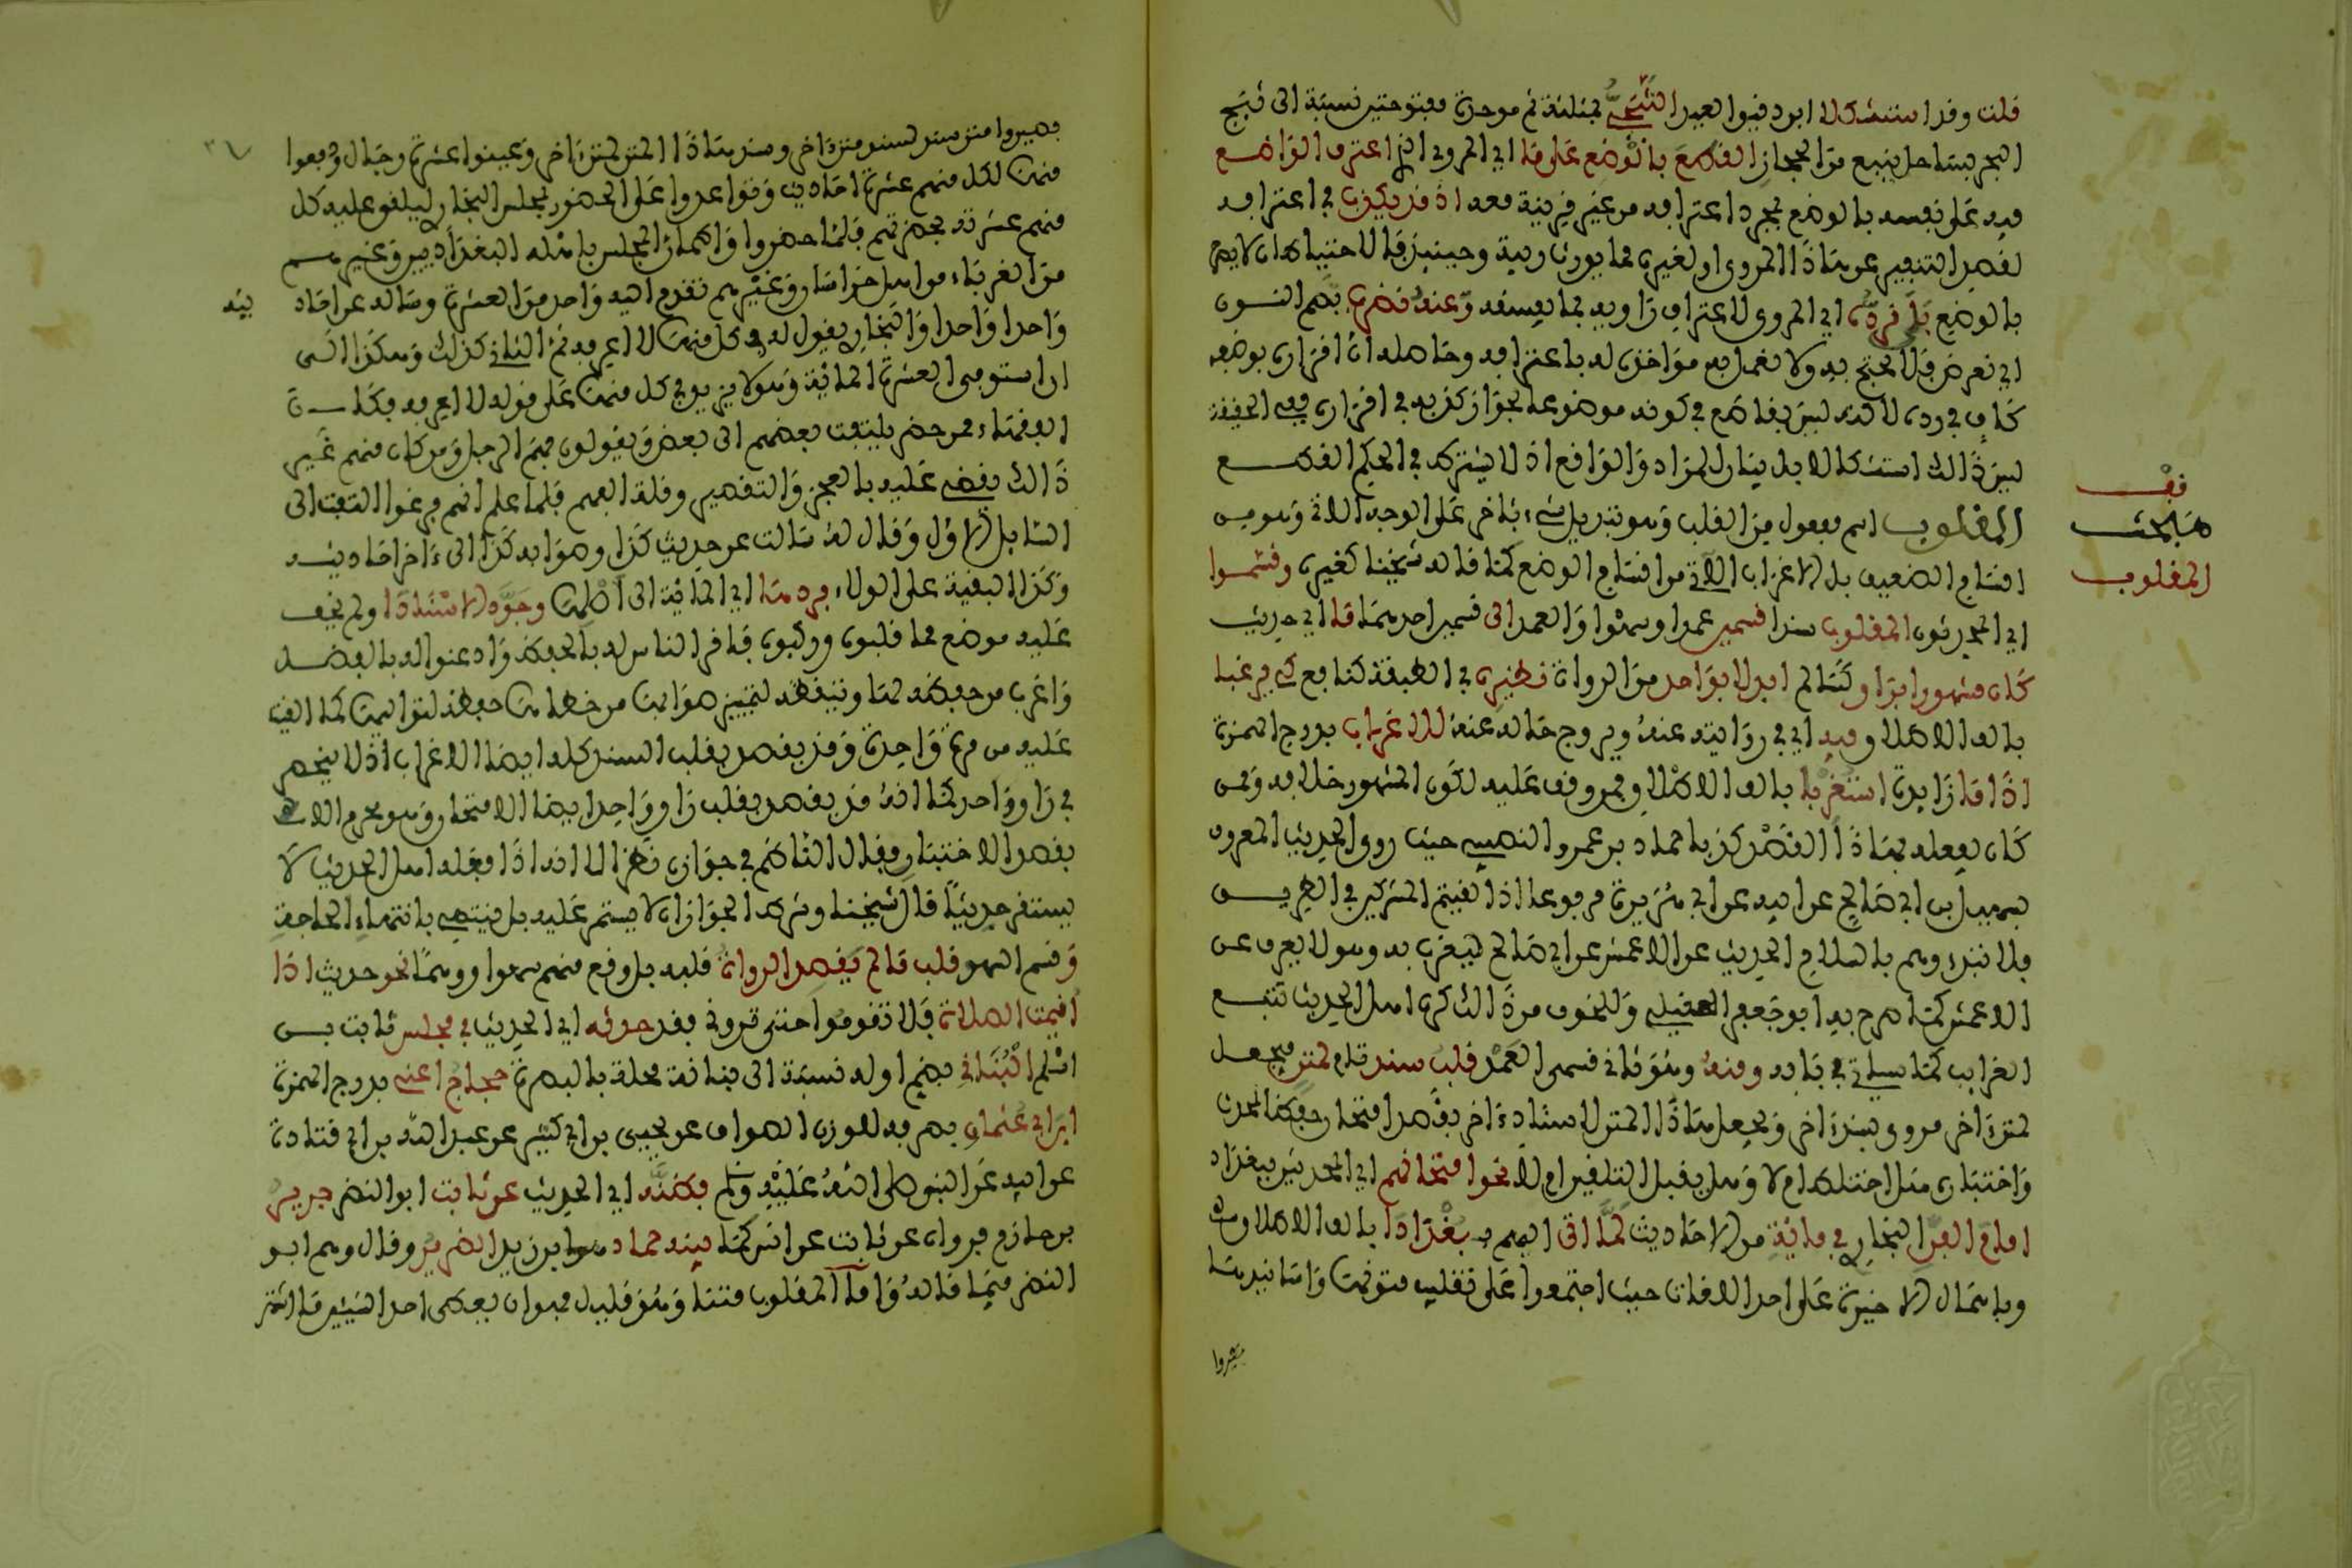 قلت وقد استشكلا ابن دقيق العيد الثبجي بمثلثة ثم موحدة مفتوحتين نسبة الى ثبج
البحر بساحل ينبع من الحجاز القطع بالوضع على ما اي المروي الذي اعترف الواضع
فيه على نفسه بالوضع بمجرد اعترافه من غير قرينة معه اذ قد يكذب في اعترافه
لقصد التنفير عن هاذا المروي او لغيره مما يورث ريبة وحينئذ فالاحتياط ان لا يصرح
بالوضع بلى نرده اي المروي لاعتراف راويه بما يفسقه وعنه نضرب بضم النون
اي نعرض فلا يحتج به ولا نعمل به مؤاخذة له باعترافه وحاصله ان اقراره بوضعه
كاف في رده لاكنه ليس بقاطع في كونه موضوعا لجواز كذبه في اقراره ففي الحقيقة
ليس ذالك استشكالا بل بيان للمراد والواقع اذ لا يشترط في الحكم القطع
المقلوب اسم مفعول من القلب وهو تبديل شيء بئاخر على الوجه الاتي وهو من
اقسام الضعيف بل الاغراب الاتي من اقسام الوضع كما قاله شيخنا كغيره وقسموا
اي المحدثون المقلوب سندا قسمين عمدا وسهوا والعمد الى قسمين احدهما ما اي حديث
كان مشهورا براو كسالم ابدلا بواحد من الرواة نظيره في الطبقة كنافع كي يرغبا
بالف الاطلاق فيه اي في روايته عنه ويروج حاله عنه للاغراب بدرج الهمزة
اذا ما زايدة استغربا بالف الاطلاق ممن وقف عليه لكون المشهور خلافه وممن
كان يفعله بهاذا القصد كذبا حماد بن عمرو النصيبي حيث روى الحديث المعروف
بسهيل ابن ابي صالح عن ابيه عن ابي هريرة مرفوعا اذا لقيتم المشركين في الطريق
فلا تبدءوهم بالسلام الحديث عن الاعمش عن ابي صالح ليغرب به وهو لا يعرف عن
الاعمش كما صرح به ابو جعفر العقيلي وللخوف من ذالك كره اهل الحديث تتبع
الغرايب كما سياتي في بابه ومنه وهو ثاني قسمي العمد قلب سند تام لمتن فيجعل
لمتن ءاخر مروي بسند ءاخر ويجعل هاذا المتن لاسناد ءاخر بقصد امتحان حفظ المحدث
واختباره هل اختلط ام لا وهل يقبل التلقين ام لا نحو امتحانهم اي المحدثين ببغداد
امام الفن البخاري في مائة من الاحاديث لما اتى اليهم بـ بغدادا بالف الاطلاق
وباهمال الاخيرة على احد اللغات حيث اجتمعوا على تقليب متونها واسانيدها
فصيروا
فف
مبحث
المقلوب
فصيروا متن سند لسند متن ءاخر وسند هاذا المتن لمتن ءاخر وعينوا عشرة رجال ودفعوا
منها لكل منهم عشرة احاديث وتواعدوا على الحضور لمجلس البخاري ليلقي عليه كل
منهم عشرته بحضرتهم فلما حضروا واطمأن المجلس باهله البغداديين وغيرهم
من الغرباء من اهل خراسان وغيرهم تقدم اليه واحد من العشرة وساله عن احاد
يثه
واحدا واحدا والبخاري يقول له في كل منها لا اعرفه ثم الثاني كذلك وهكذا الى
ان استوفى العشرة المائة وهو لا يزيد في كل منها على قوله لا اعرفه فكان
الفقهاء ممن حضر يلتفت بعضهم الى بعض ويقولون فهم الرجل ومن كان منهم غير
ذالك يقضي عليه بالعجز والتقصير وقلة الفهم فلما علم انهم فرغوا التفت الى
السائل الاول وقال له سالت عن حديث كذا وصوابه كذا الى ءاخر احاديثه
وكذا البقية على الولاء فردها اي المائة الى اصلها وجود الاسنادا ولم يخف
عليه موضع مما قلبوه وركبوه فاقر الناس له بالحفظ واذعنوا له بالفضل
واغرب من حفظه لها وتيقظه لتمييز صوابها من خطاها حفظه لتواليها كما القيت
عليه من مرة واحدة وقد يقصد بقلب السند كله ايضا الاغراب اذ لا ينحصر
في راو واحد كما انه قد يقصد بقلب راو واحد ايضا الامتحان وهو محرم الا
بقصد الاختبار وقال الناظم في جوازه نظر الا انه اذا فعله اهل الحديث لا
يستقر حديثا قال شيخنا وشرط الجواز ان لا يستمر عليه بل ينتهي بانتهاء الحاجة
وقسم السهو قلب ما لم يقصد الرواة قلبه بل وقع منهم سهوا ووهما نحو حديث اذا
اقيمت الصلاة فلا تقوموا حتى تروني فقد حدثه اي الحديث في مجلس ثابت بن
اسلم البناني بضم اوله نسبة الى بنانة محلة بالبصرة حجاج اعني بدرج الهمزة
ابن ابي عثمان بصرفه للوزن الصواف عن يحيى بن ابي كثير عن عبد الله بن ابي قتادة
عن ابيه عن النبي صلى الله عليه وسلم فظنه اي الحديث عن ثابت ابو النضر جرير
بن حازم فرواه عن ثابت عن انس كما بينه حماد هو ابن زيد الضرير وقال وهم ابو
النضر فيما قاله واما المقلوب متنا وهو قليل فهو ان يعطى احد الشيئين ما اشتهر